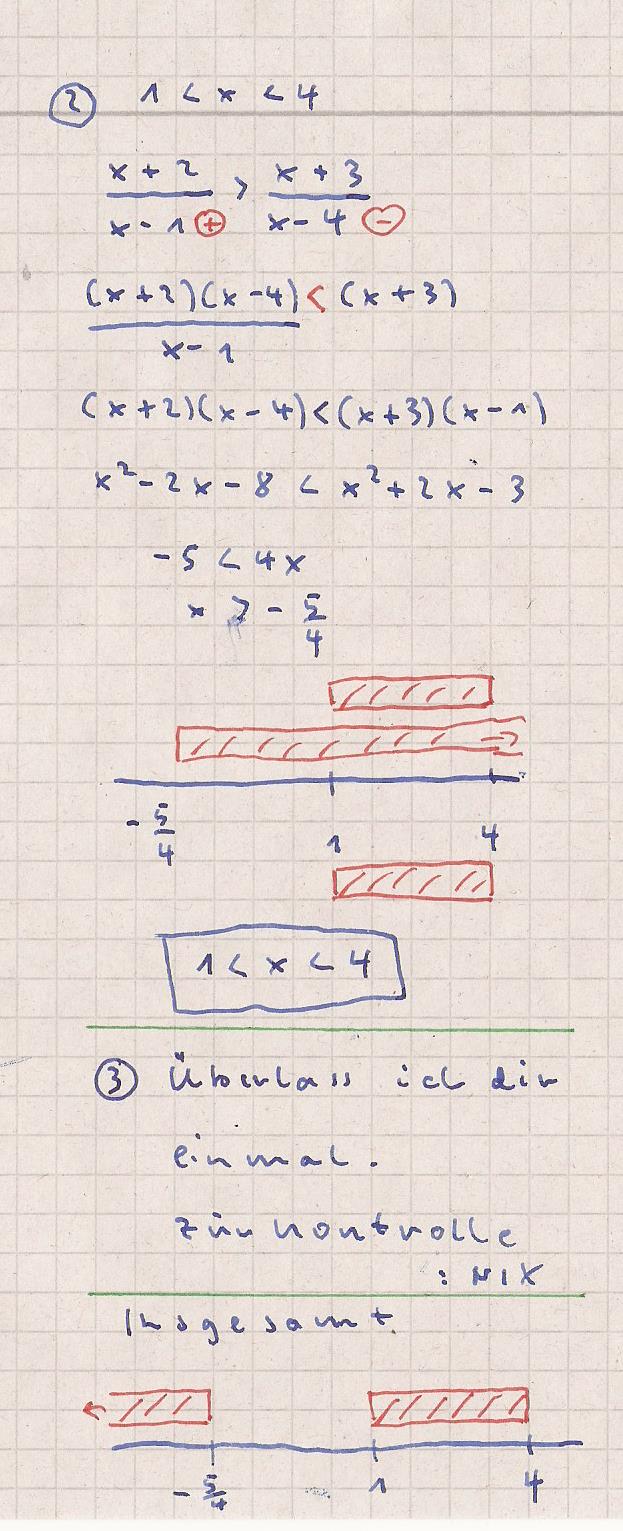 ② 1 < x < 4
x + 2 / x - 1 ⊕ > x + 3 / x - 4 ⊖
(x + 2)(x - 4) / x - 1 < (x + 3)
(x + 2)(x - 4) < (x + 3)(x - 1)
x² - 2x - 8 < x² + 2x - 3
- 5 < 4x
x > - 5/4
- 5/4 1 4
1 < x < 4
③ Überlass ich dir
einmal.
Zur Kontrolle
: NIX
Insgesamt.
- 5/4 1 4